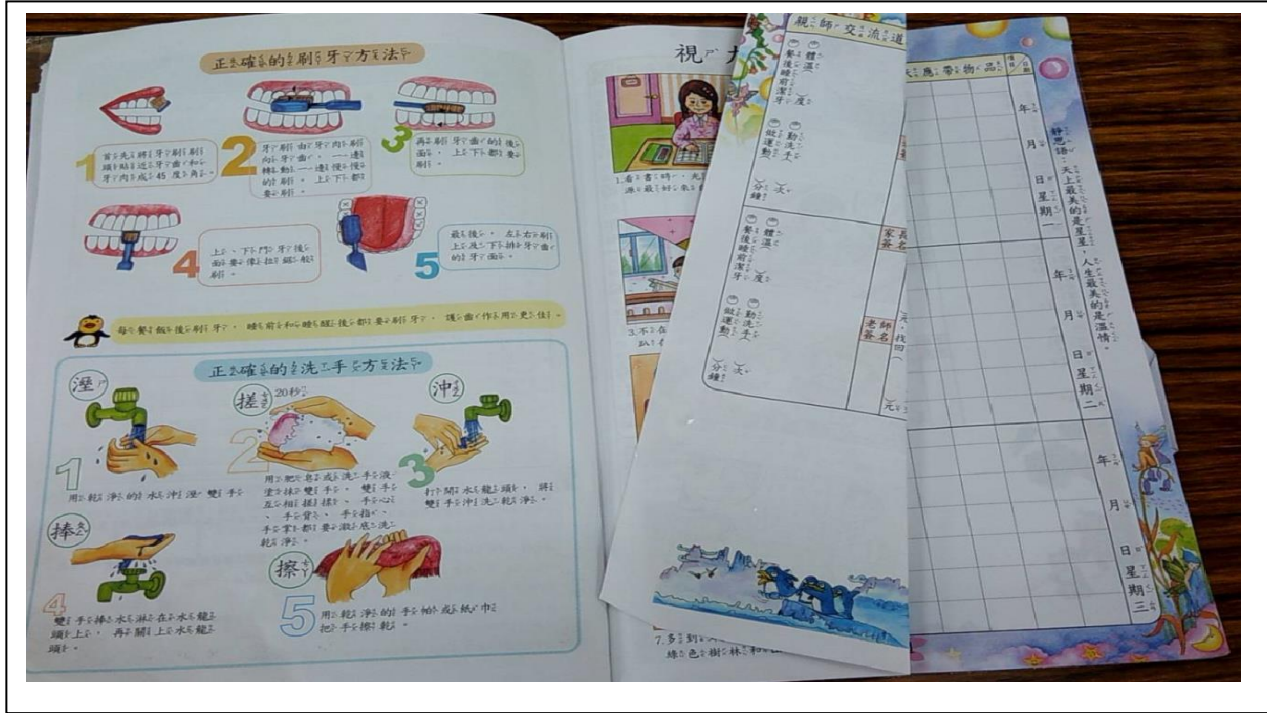 正確的刷牙方法
1
首先將牙刷刷
頭貼近牙齒和
牙肉成45度角。
2
牙刷由牙肉刷
向牙齒,一邊
轉動一邊慢慢
的刷。上下都
要刷。
3
再刷牙齒的後
面,上下都要
刷。
4
上、下門牙後
面要像拉鋸般
刷。
5
最後,左右刷
上及下排牙齒
的牙面。
每餐飯後刷牙,睡前和睡醒後都要刷牙,護齒作用更佳。
正確的洗手方法
溼
1
用乾淨的水沖溼雙手
搓
20秒
2
用肥皂或洗手液
塗抹雙手,雙手
互相搓揉、手心
、手背、手指、
手掌都要澈底洗
乾淨。
沖
3
打開水龍頭,將
雙手沖洗乾淨。
捧
4
雙手捧水淋在水龍
頭上,再關上水龍
頭。
擦
5
用乾淨的手帕或紙巾
把手擦乾。
視力
1.看書時,光
源最好來
3.不在
7.多到
綠色樹林和
親師交流道
體溫
度
餐後睡前潔牙
勤洗手
次
做運動
分鐘
家長簽名
體溫
度
餐後睡前潔牙
勤洗手
次
做運動
分鐘
老師簽名
元,找回
元
天應帶物品
年
月
日
星期一
年
月
日
星期二
年
月
日
星期三
靜思語:天上最美的是星星,人生最美的是溫情。